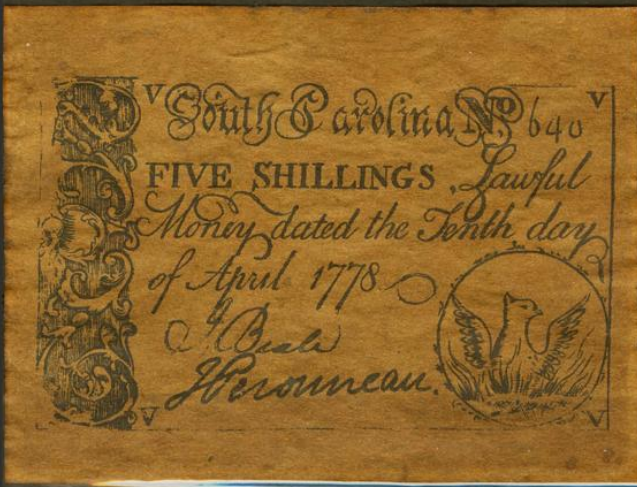 V South Carolina No 640 V
FIVE SHILLINGS, Lawful
Money dated the Tenth day
of April 1778
J Beale
J Peronneau.
V V